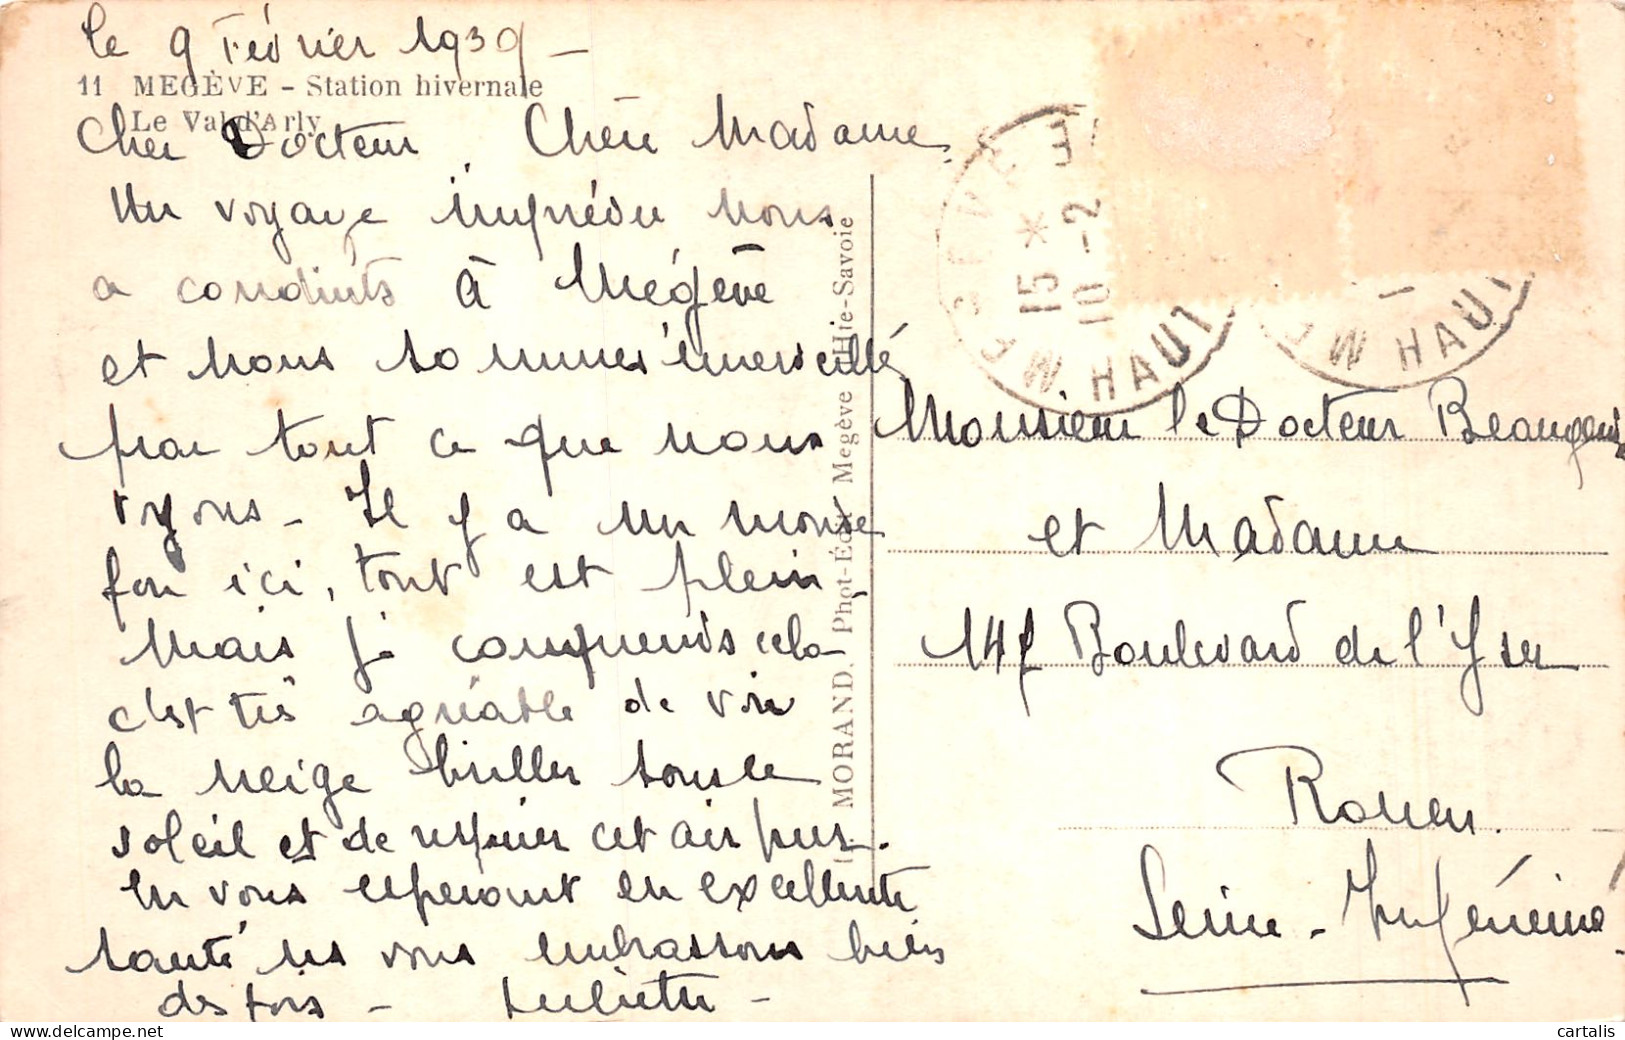 le 9 Février 1939 -
11 MEGÈVE - Station hivernale
Le Val d'Arly
Cher Docteur, Chère Madame,
Un voyage imprévu nous
a conduits à Mégève
et nous sommes émerveillé
par tout ce que nous
voyons - Il y a un monde
fou ici, tout est plein
Mais je comprends cela
c'est très agréable de voir
la neige briller sous le
soleil et de respirer cet air pur.
En vous espérant en excellente
santé, ns vous embrassons bien
des fois - Juliette -
MORAND, Phot-Édit Megève Hte-Savoie
15 *
10 -2
HAUT
HAU
Monsieur le Docteur
et Madame
Boulevard de l'Yser
Rouen.
Seine-Inférieure
cartalis